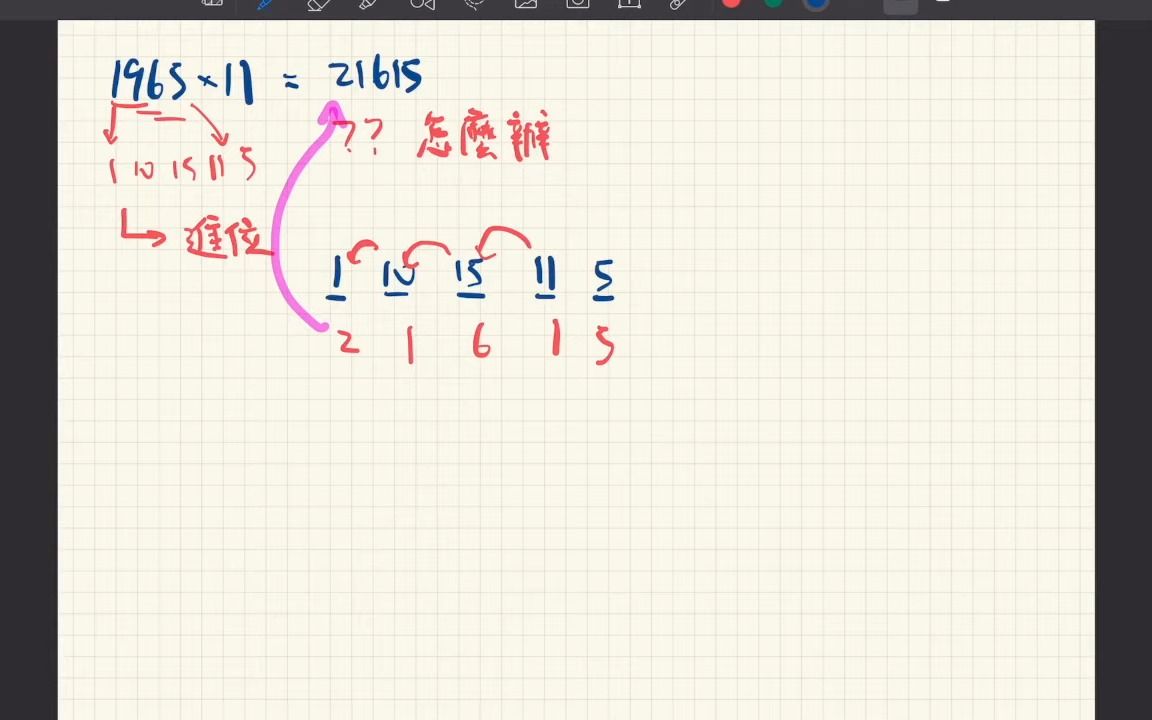 1965×11 = 21615
?? 怎麼辦
1 10 15 11 5
進位
1 10 15 11 5
2 1 6 1 5